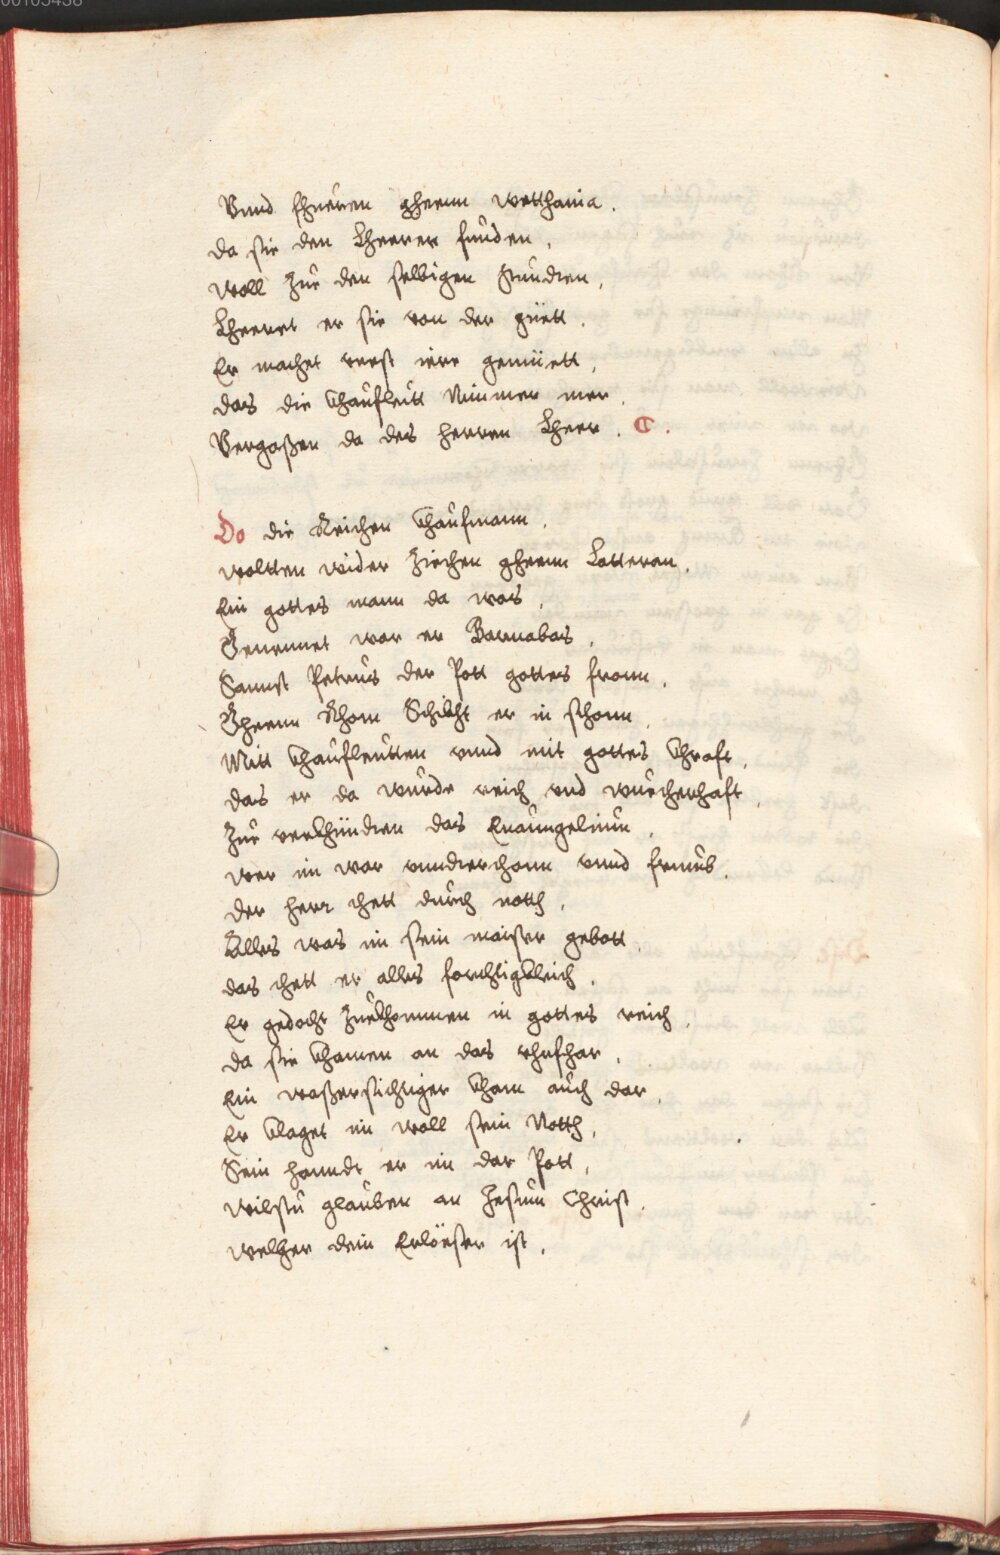 00105438
Vnnd khueren gheenn wetthania .
da sie den Lherrer funden ,
woll zue den selbigen stundten ,
Lherret er sie von der güett .
Er machet verst irre gemüett ,
das die khaufleütt Nimmer mer .
Vergaßen da des herren Lherr . C .
Do die Reichen khaufmann .
woltten wider ziechen gheenn Latteran .
Ein gottes mann da was ,
Genennet war er Barnabas ,
Sannst Petrus der Pott gottes fronn .
Gheenn Rhom Schikht er in schonn .
Mitt khaufleütten vnnd mit gottes khraft ,
das er da wurde reich vnd wuecherhaft .
Zue verkhündten das Euaungelium ,
wer im war vnndterthann vnnd frumb .
Der herr thett durch notth ,
Alles was im sein maister gebott .
das thett er alles forchtigkleich .
Er gedacht zuekhommen in gottes reich .
da sie khamen an das
Ein waßersichtiger kham auch dar .
Er klaget im woll sein Notth ,
Sein hanndt er im dar Pott ,
wilstu glauben an Jesum Christ .
welher dein Erlöeßer ist ,